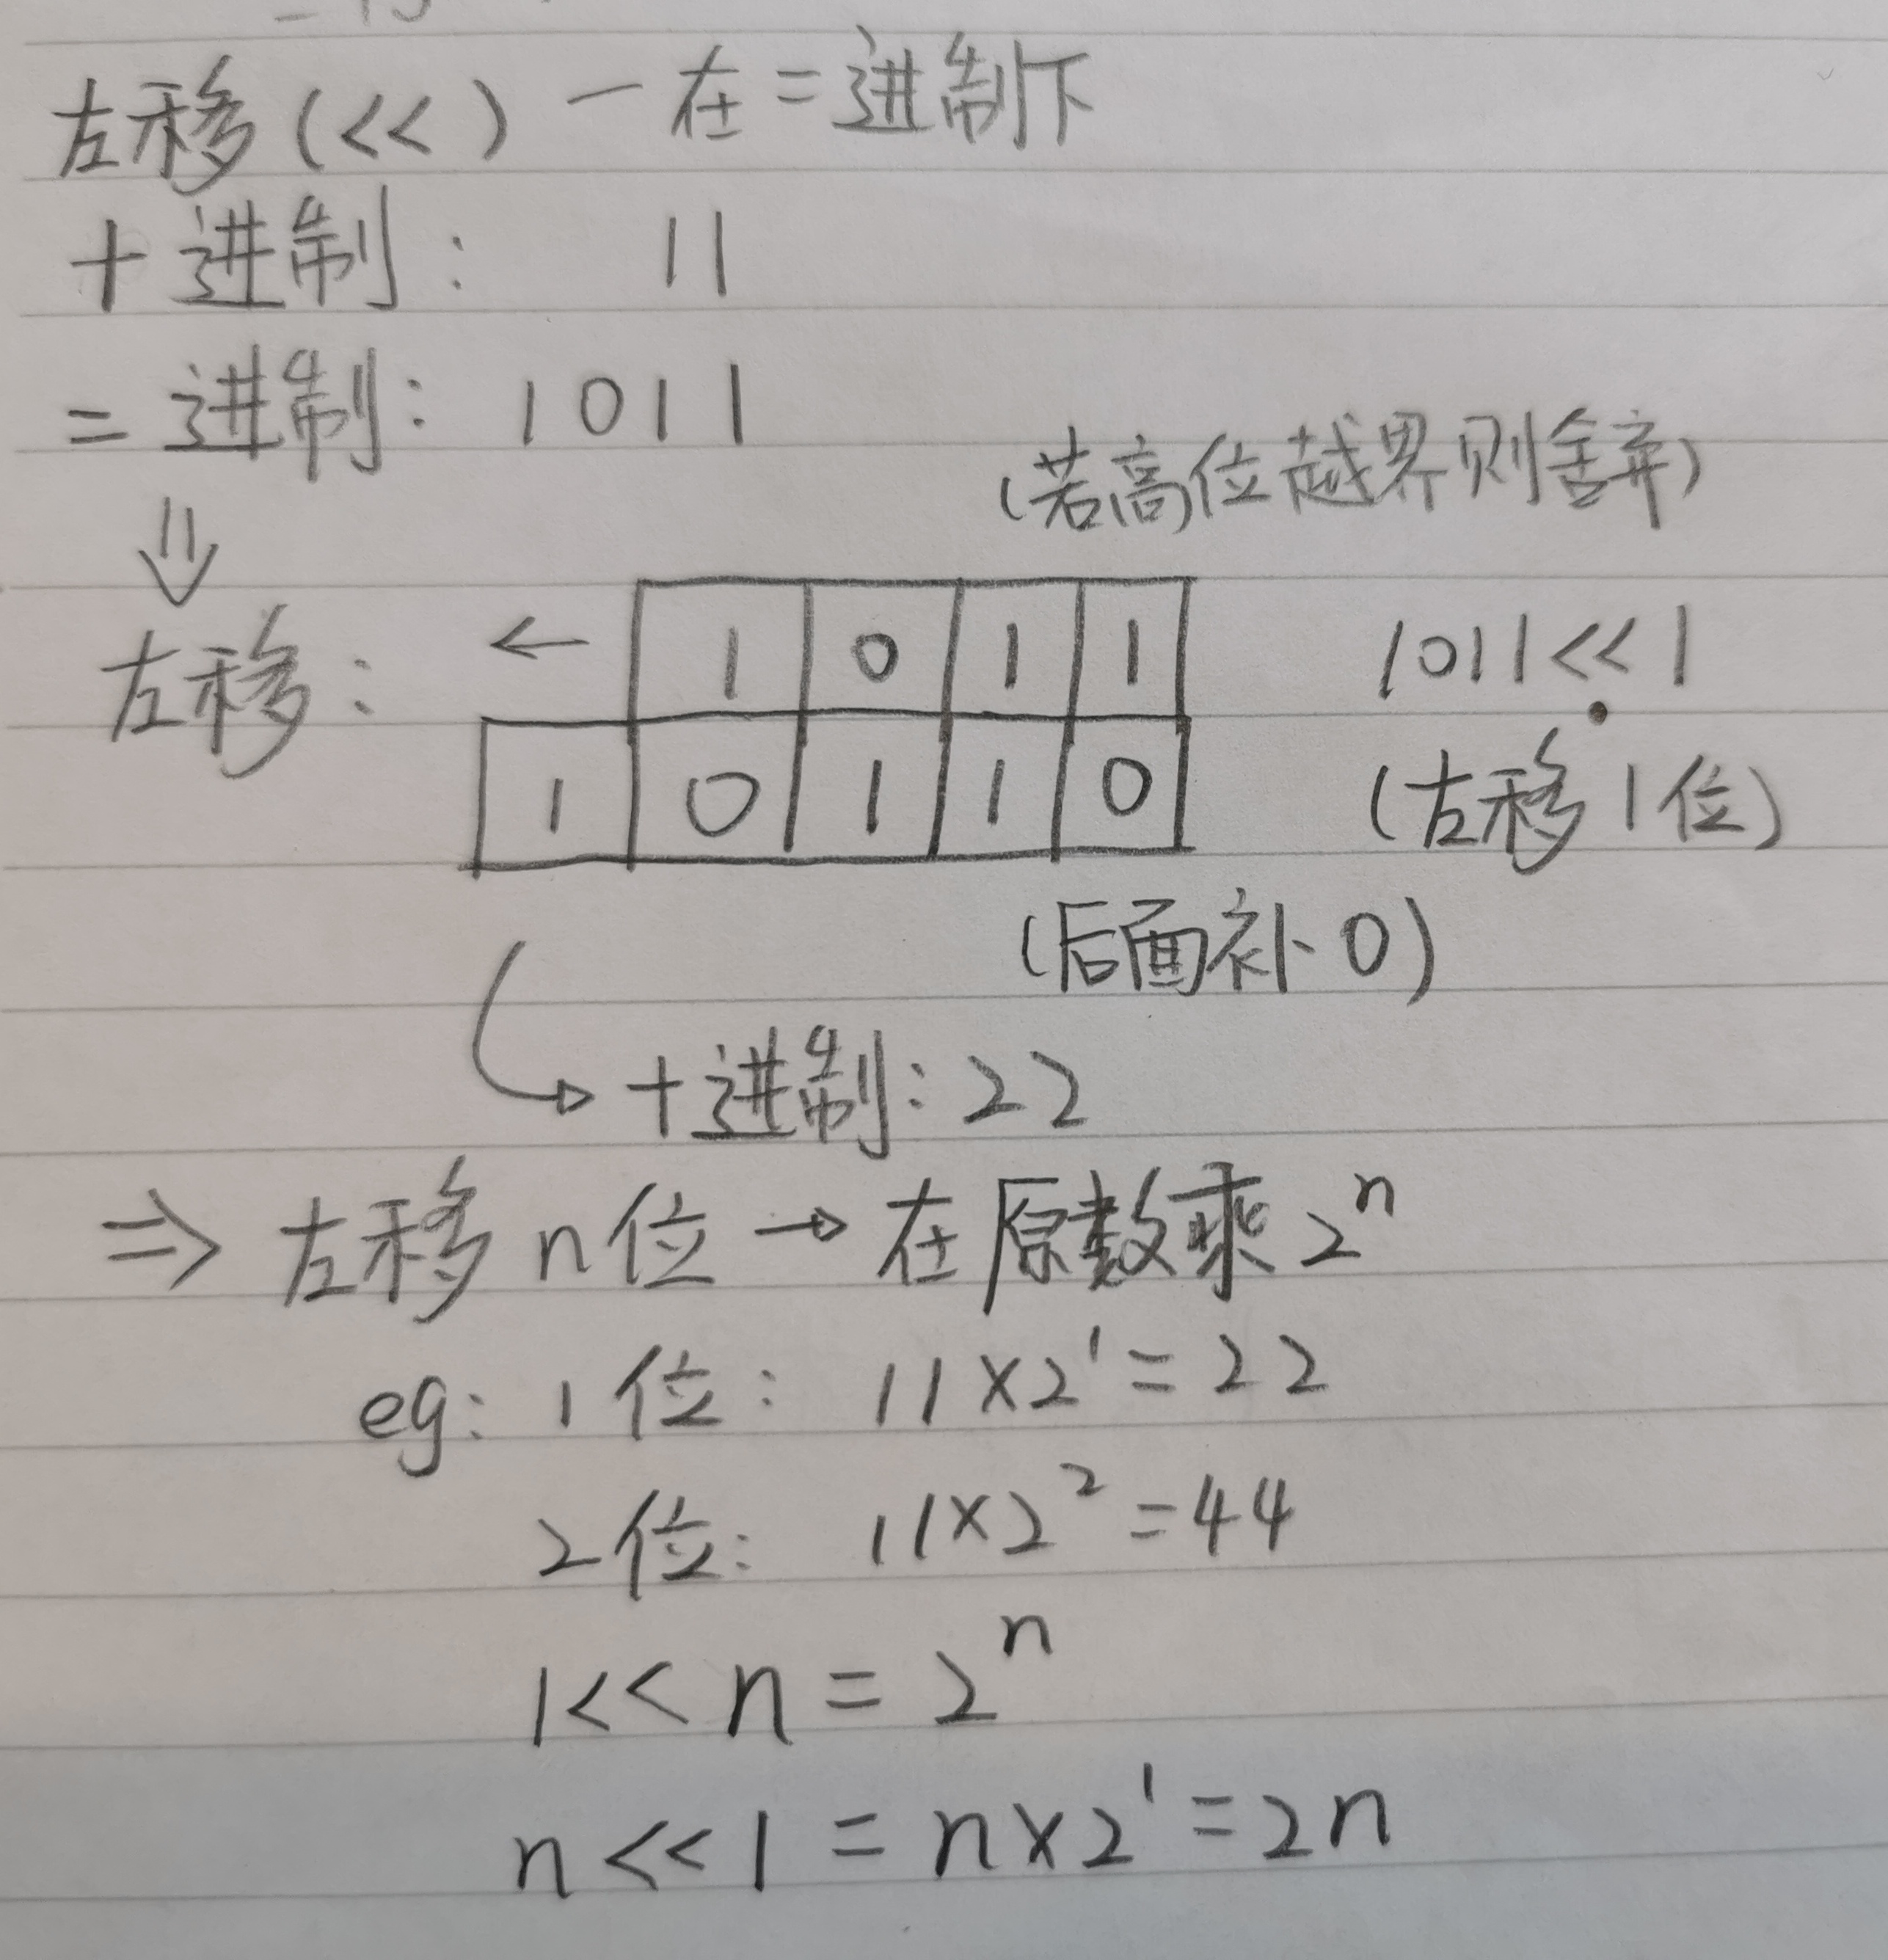 左移(<<) — 在二进制下
十进制: 11
二进制: 1011
(若高位越界则舍弃)
⇓
左移: ← 1 0 1 1 1011<<1
1 0 1 1 0 (左移1位)
(后面补0)
十进制: 22
⇒ 左移n位 → 在原数乘2ⁿ
eg: 1位: 11×2¹=22
2位: 11×2²=44
1<<n=2ⁿ
n<<1=n×2¹=2n